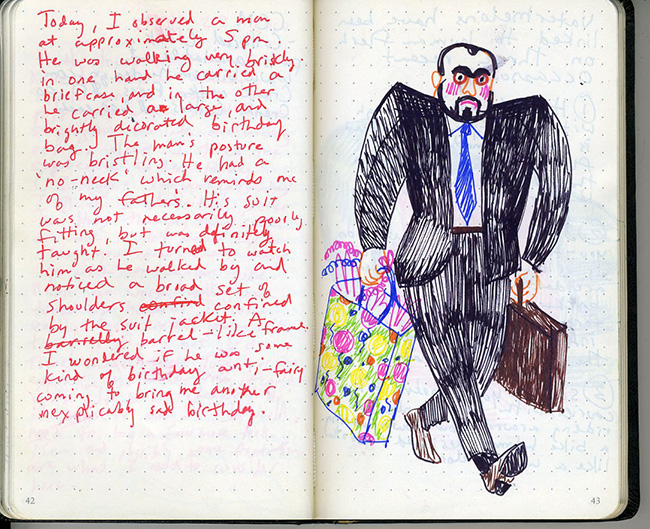 Today, I observed a man
at approximately 5pm.
He was walking very briskly.
in one hand he carried a
briefcase, and in the other
he carried a large, and
brightly dicorated birthday
bag. The man's posture
was bristling. He had a
"no-neck" which reminds me
of my father's. His suit
was not necessarily poorly
fitting, but was definitely
taught. I turned to watch
him as he walked by and
noticed a broad set of
shoulders confind confined
by the suit jacket. A
barrelly barrel-like frame.
I wondered if he was some
kind of birthday anti-fairy
coming to bring me another
inexplicably sad birthday.
42
43